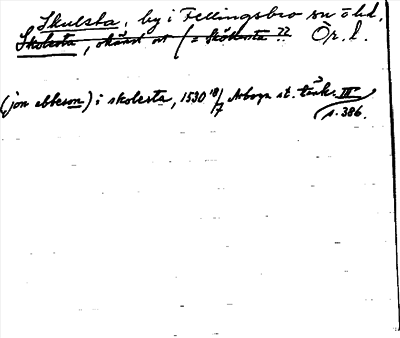 Skulsta, by i Fellingsbro sn ö hd,
Skolesta, okänd ort (= Skölesta ?? Ör. l.
(jon ebbeson) i skolesta, 1530 18/7 Arboga st. tänk. III
s. 386.